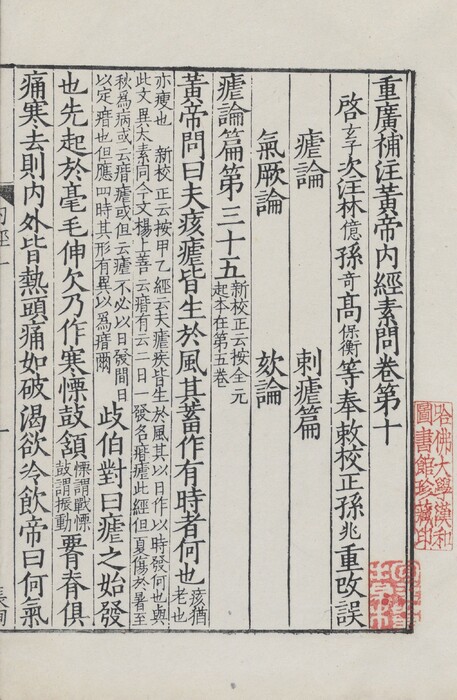 重廣補注黃帝內經素問卷第十
啓玄子次注林億孫奇高保衡等奉敕校正孫兆重改誤
瘧論　刺瘧篇
氣厥論　欬論
瘧論篇第三十五新校正云按全元起本在第五卷
黃帝問曰夫痎瘧皆生於風其蓄作有時者何也痎猶老也
亦瘦也　新校正云按甲乙經云夫瘧疾皆生於風其以日作以時發何也與
此文異太素同今文楊上善云痎有云二日一發名痎瘧此經但夏傷於暑至
秋爲病或云痎瘧或但云瘧不必以日發間日
以定痎也但應四時其形有異以爲痎爾
歧伯對曰瘧之始發
也先起於毫毛伸欠乃作寒慄鼓頷慄謂戰慄鼓謂振動腰脊俱
痛寒去則內外皆熱頭痛如破渴欲冷飲帝曰何氣
哈佛大學漢和
圖書館珍藏印